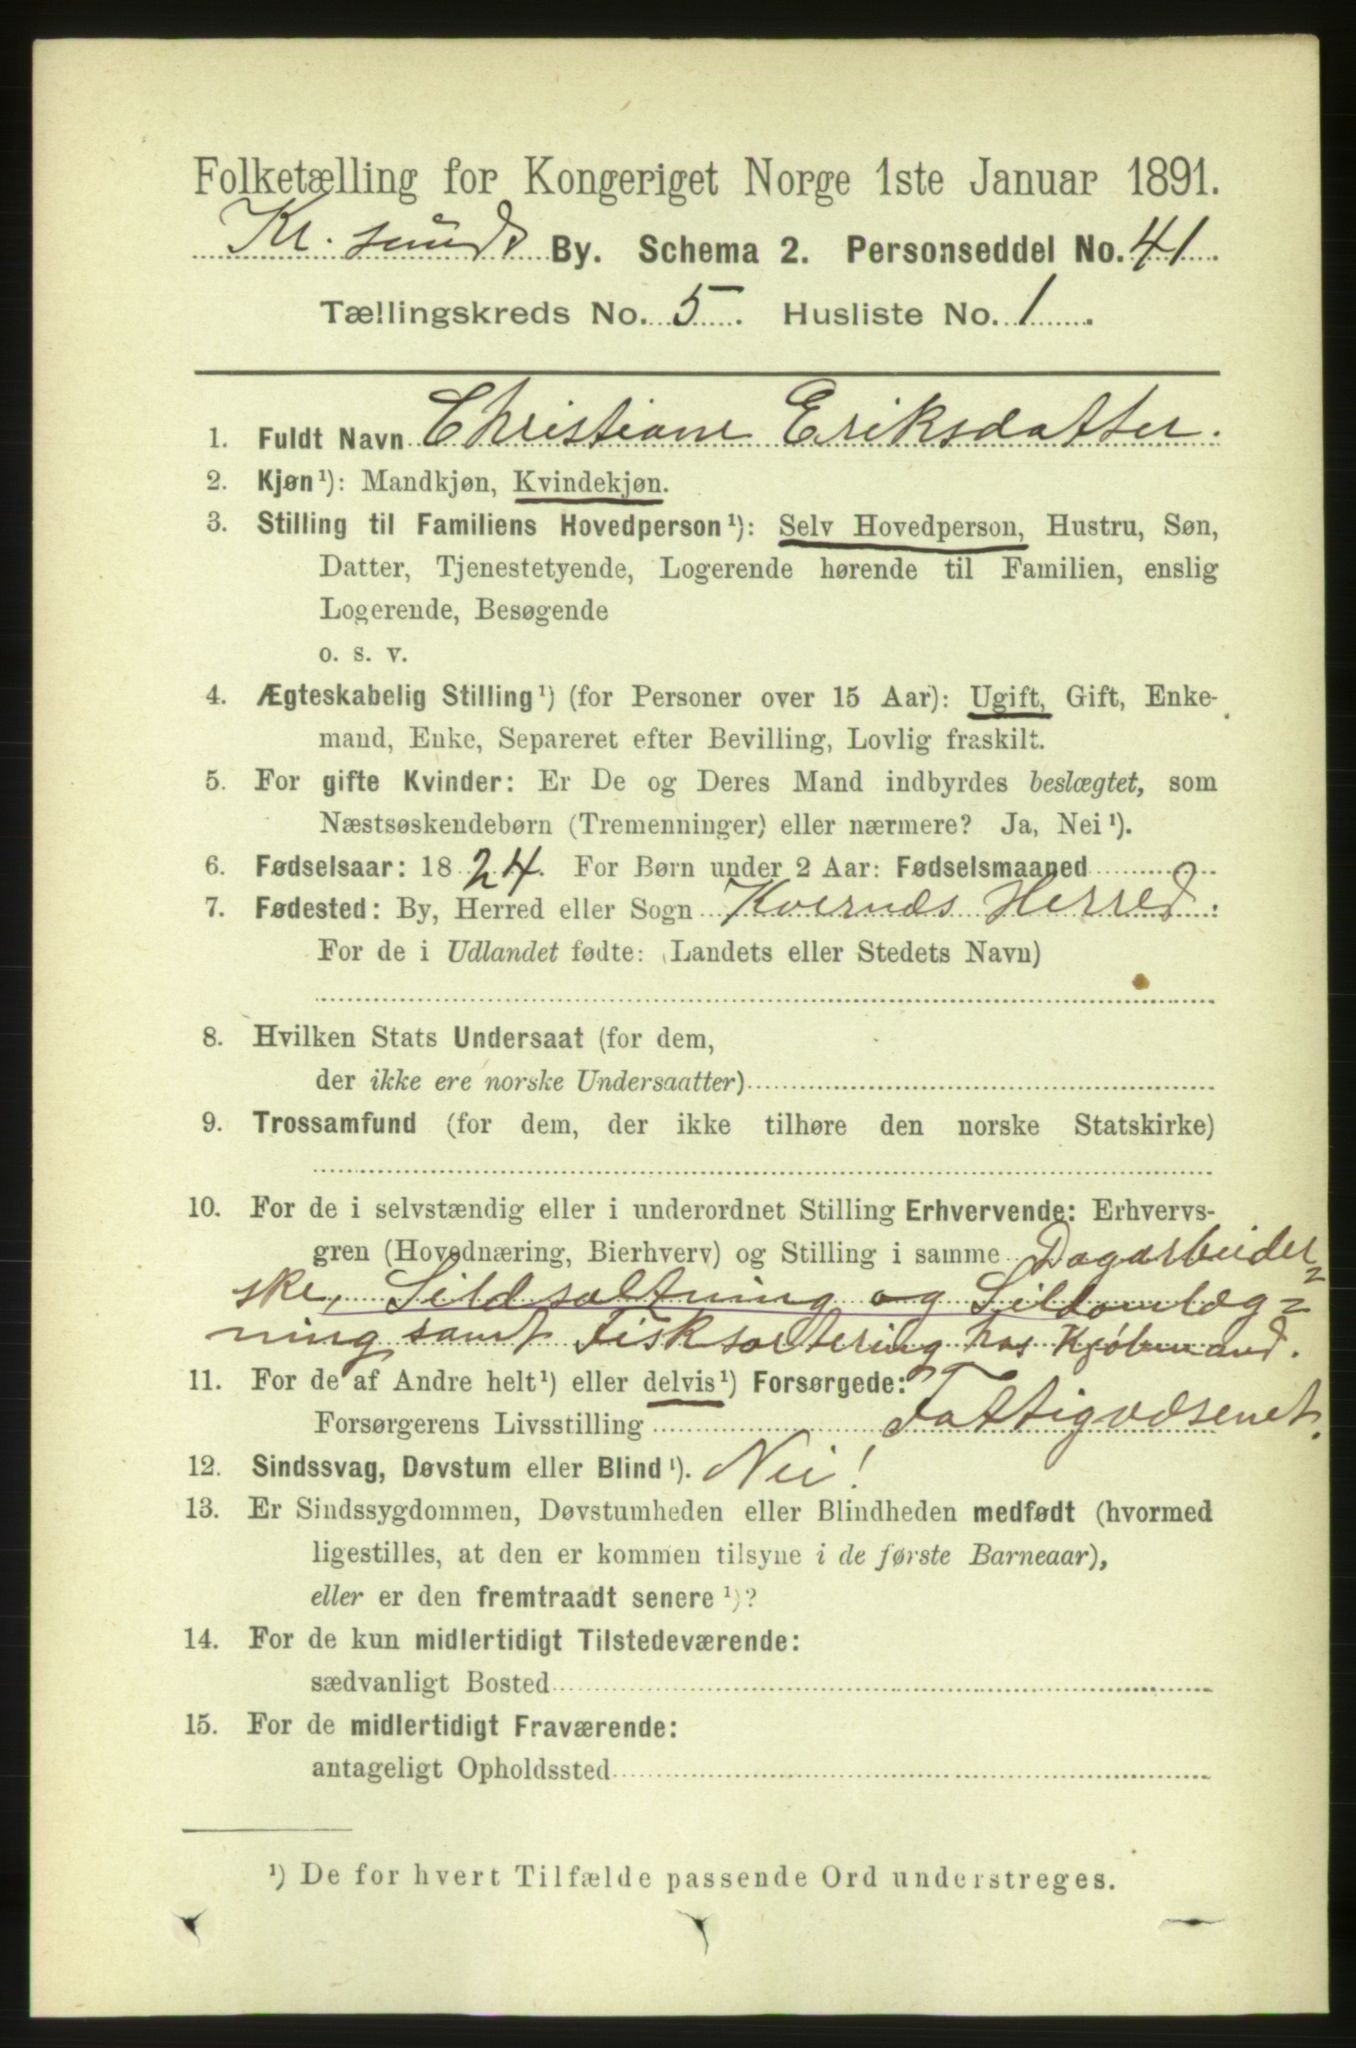 Folketælling for Kongeriget Norge 1ste Januar 1891.
Kr. sunds By. Schema 2. Personseddel No. 41.
Tællingskreds No. 5. Husliste No. 1.
1. Fuldt Navn Christiane Eriksdatter.
2. Kjøn¹): Mandkjøn, Kvindekjøn.
3. Stilling til Familiens Hovedperson¹): Selv Hovedperson, Hustru, Søn,
Datter, Tjenestetyende, Logerende hørende til Familien, enslig
Logerende, Besøgende
o. s. v.
4. Ægteskabelig Stilling¹) (for Personer over 15 Aar): Ugift, Gift, Enke-
mand, Enke, Separeret efter Bevilling, Lovlig fraskilt.
5. For gifte Kvinder: Er De og Deres Mand indbyrdes beslægtet, som
Næstsøskendebørn (Tremenninger) eller nærmere? Ja, Nei¹).
6. Fødselsaar: 1824. For Børn under 2 Aar: Fødselsmaaned
7. Fødested: By, Herred eller Sogn Kvernæs Herred.
For de i Udlandet fødte: (Landets eller Stedets Navn)
8. Hvilken Stats Undersaat (for dem,
der ikke ere norske Undersaatter)
9. Trossamfund (for dem, der ikke tilhøre den norske Statskirke)
10. For de i selvstændig eller i underordnet Stilling Erhvervende: Erhvervs-
gren (Hovednæring, Bierhverv) og Stilling i samme Dagarbeider=
ske, Sildsaltning og Sildomlæg=
ning samt Fisksortering hos Kjøbmand.
11. For de af Andre helt¹) eller delvis¹) Forsørgede:
Forsørgerens Livsstilling Fattigvæsenet.
12. Sindssvag, Døvstum eller Blind¹). Nei!
13. Er Sindssygdommen, Døvstumheden eller Blindheden medfødt (hvormed
ligestilles, at den er kommen tilsyne i de første Barneaar),
eller er den fremtraadt senere¹)?
14. For de kun midlertidigt Tilstedeværende:
sædvanligt Bosted
15. For de midlertidigt Fraværende:
antageligt Opholdssted
¹) De for hvert Tilfælde passende Ord understreges.